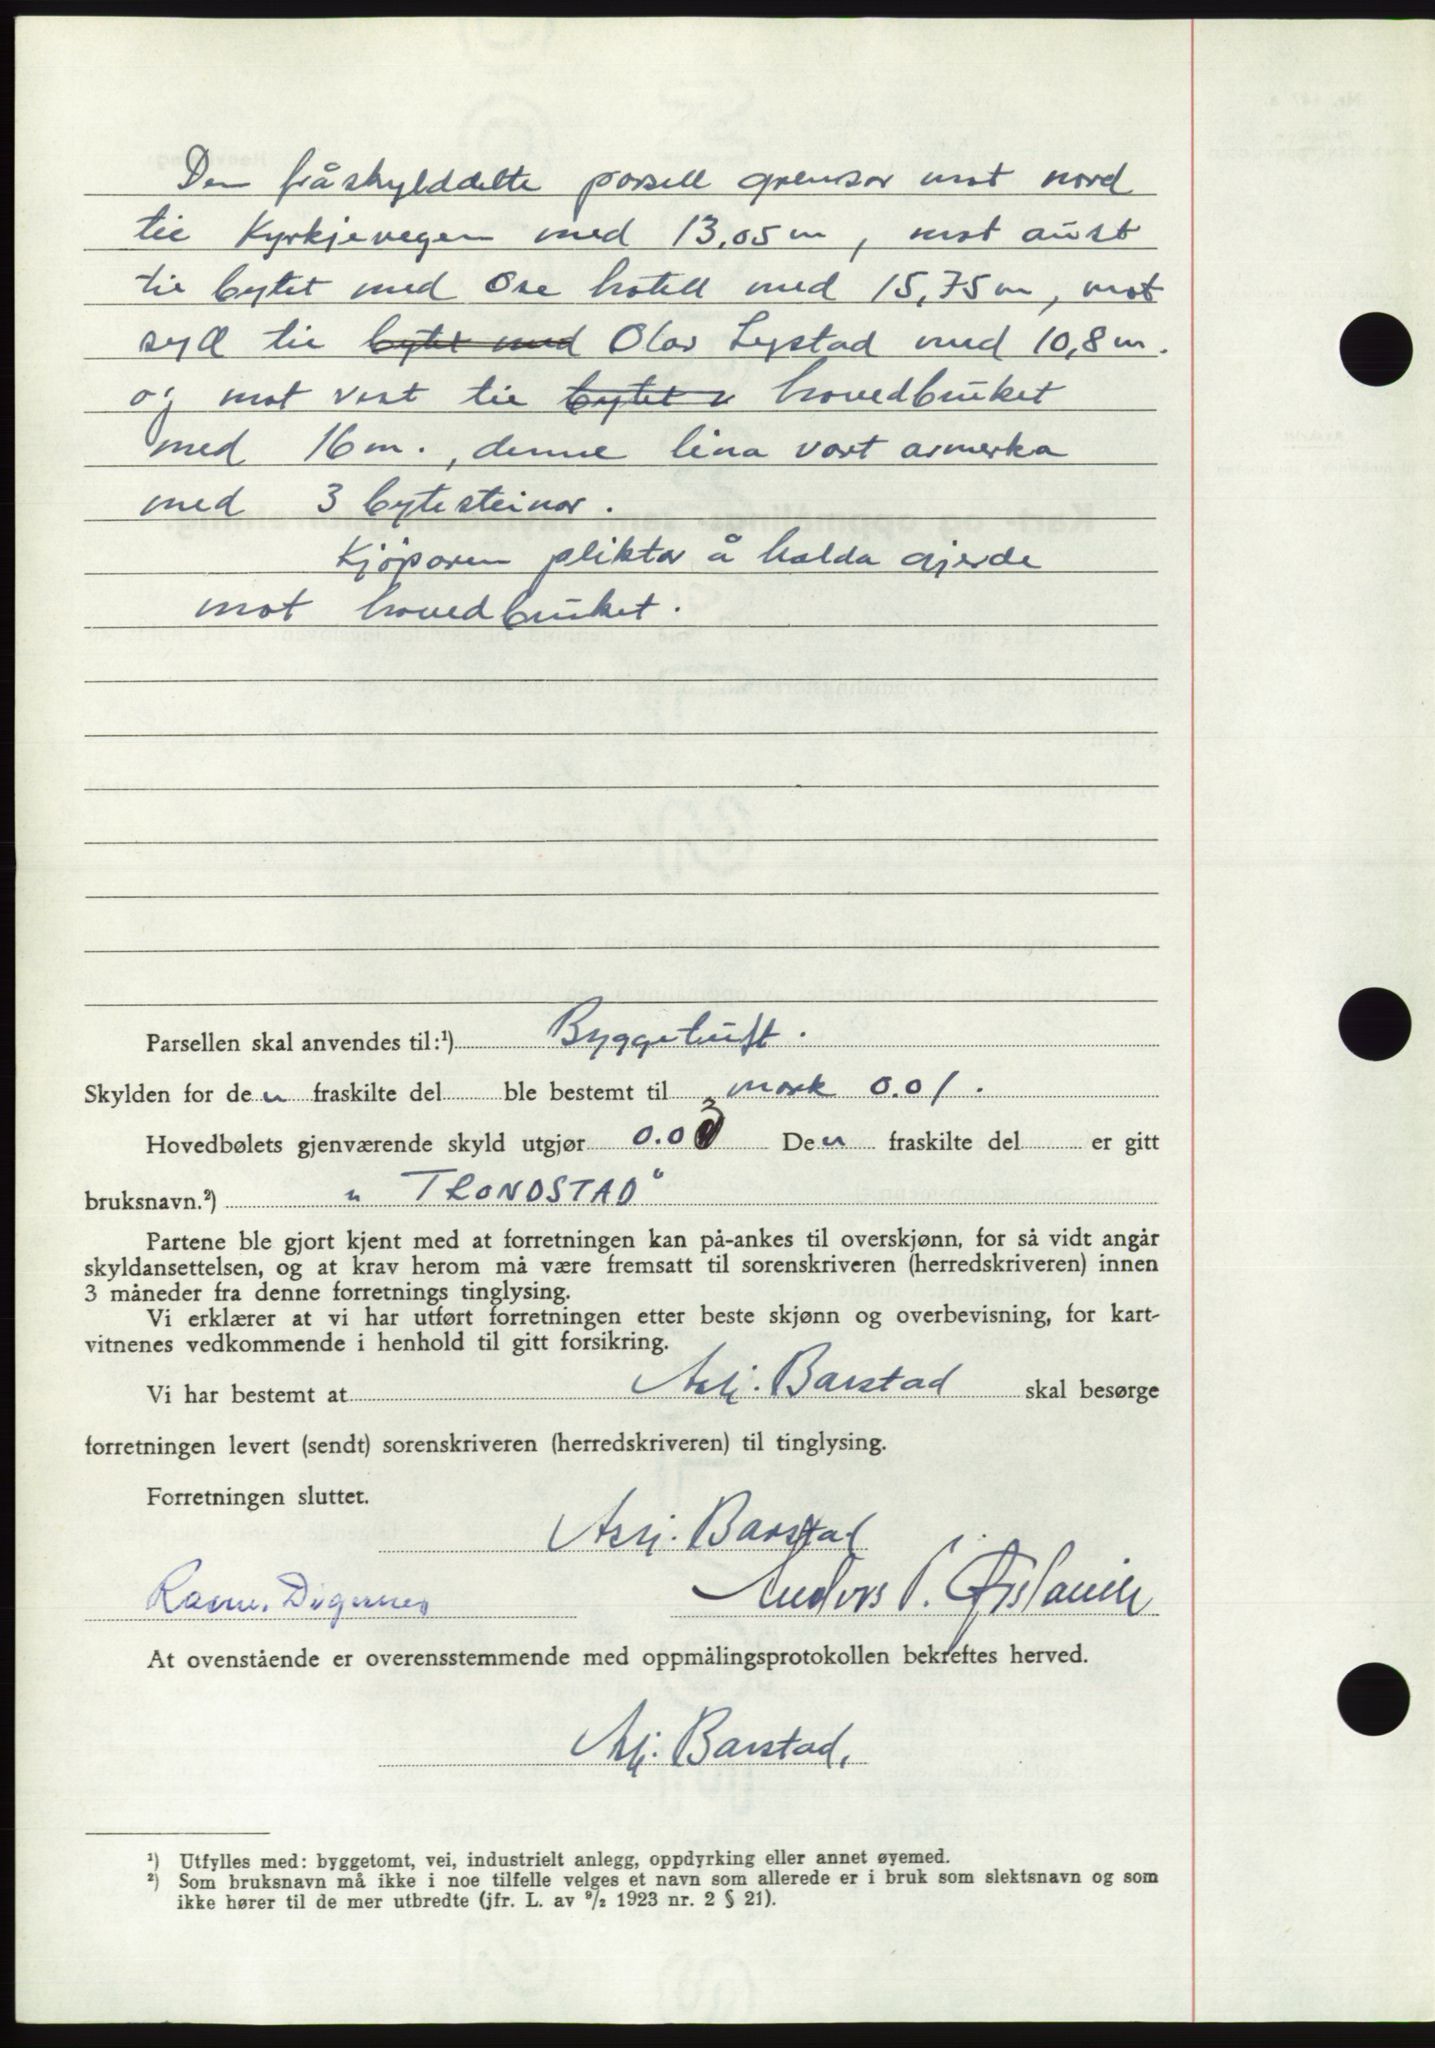 Den fråskylddelte parsell grensar mot nord
til Kyrkjevegen med 13,05 m, mot aust
til bytet med Ose hotell med 15,75 m, mot
syd til bytet med Olav Lystad med 10,8 m.
og mot vest til bytet hovedbruket
med 16 m., denne lina vart avmerka
med 3 bytesteinar.
Kjøparen pliktar å halda gjerde
mot hovedbruket.
Parsellen skal anvendes til:¹) Byggetuft.
Skylden for den fraskilte del ble bestemt til mark 0.01.
Hovedbølets gjenværende skyld utgjør 0.03 Den fraskilte del er gitt
bruksnavn.²) „TRONDSTAD"
Partene ble gjort kjent med at forretningen kan på-ankes til overskjønn, for så vidt angår
skyldansettelsen, og at krav herom må være fremsatt til sorenskriveren (herredskriveren) innen
3 måneder fra denne forretnings tinglysing.
Vi erklærer at vi har utført forretningen etter beste skjønn og overbevisning, for kart-
vitnenes vedkommende i henhold til gitt forsikring.
Vi har bestemt at Asbj. Barstad skal besørge
forretningen levert (sendt) sorenskriveren (herredskriveren) til tinglysing.
Forretningen sluttet.
Asbj. Barstad
Rasm. Digernes Anders P.
At ovenstående er overensstemmende med oppmålingsprotokollen bekreftes herved.
Asbj. Barstad.
¹) Utfylles med: byggetomt, vei, industrielt anlegg, oppdyrking eller annet øyemed.
²) Som bruksnavn må ikke i noe tilfelle velges et navn som allerede er i bruk som slektsnavn og som
ikke hører til de mer utbredte (jfr. L. av ⁹/₂ 1923 nr. 2 § 21).